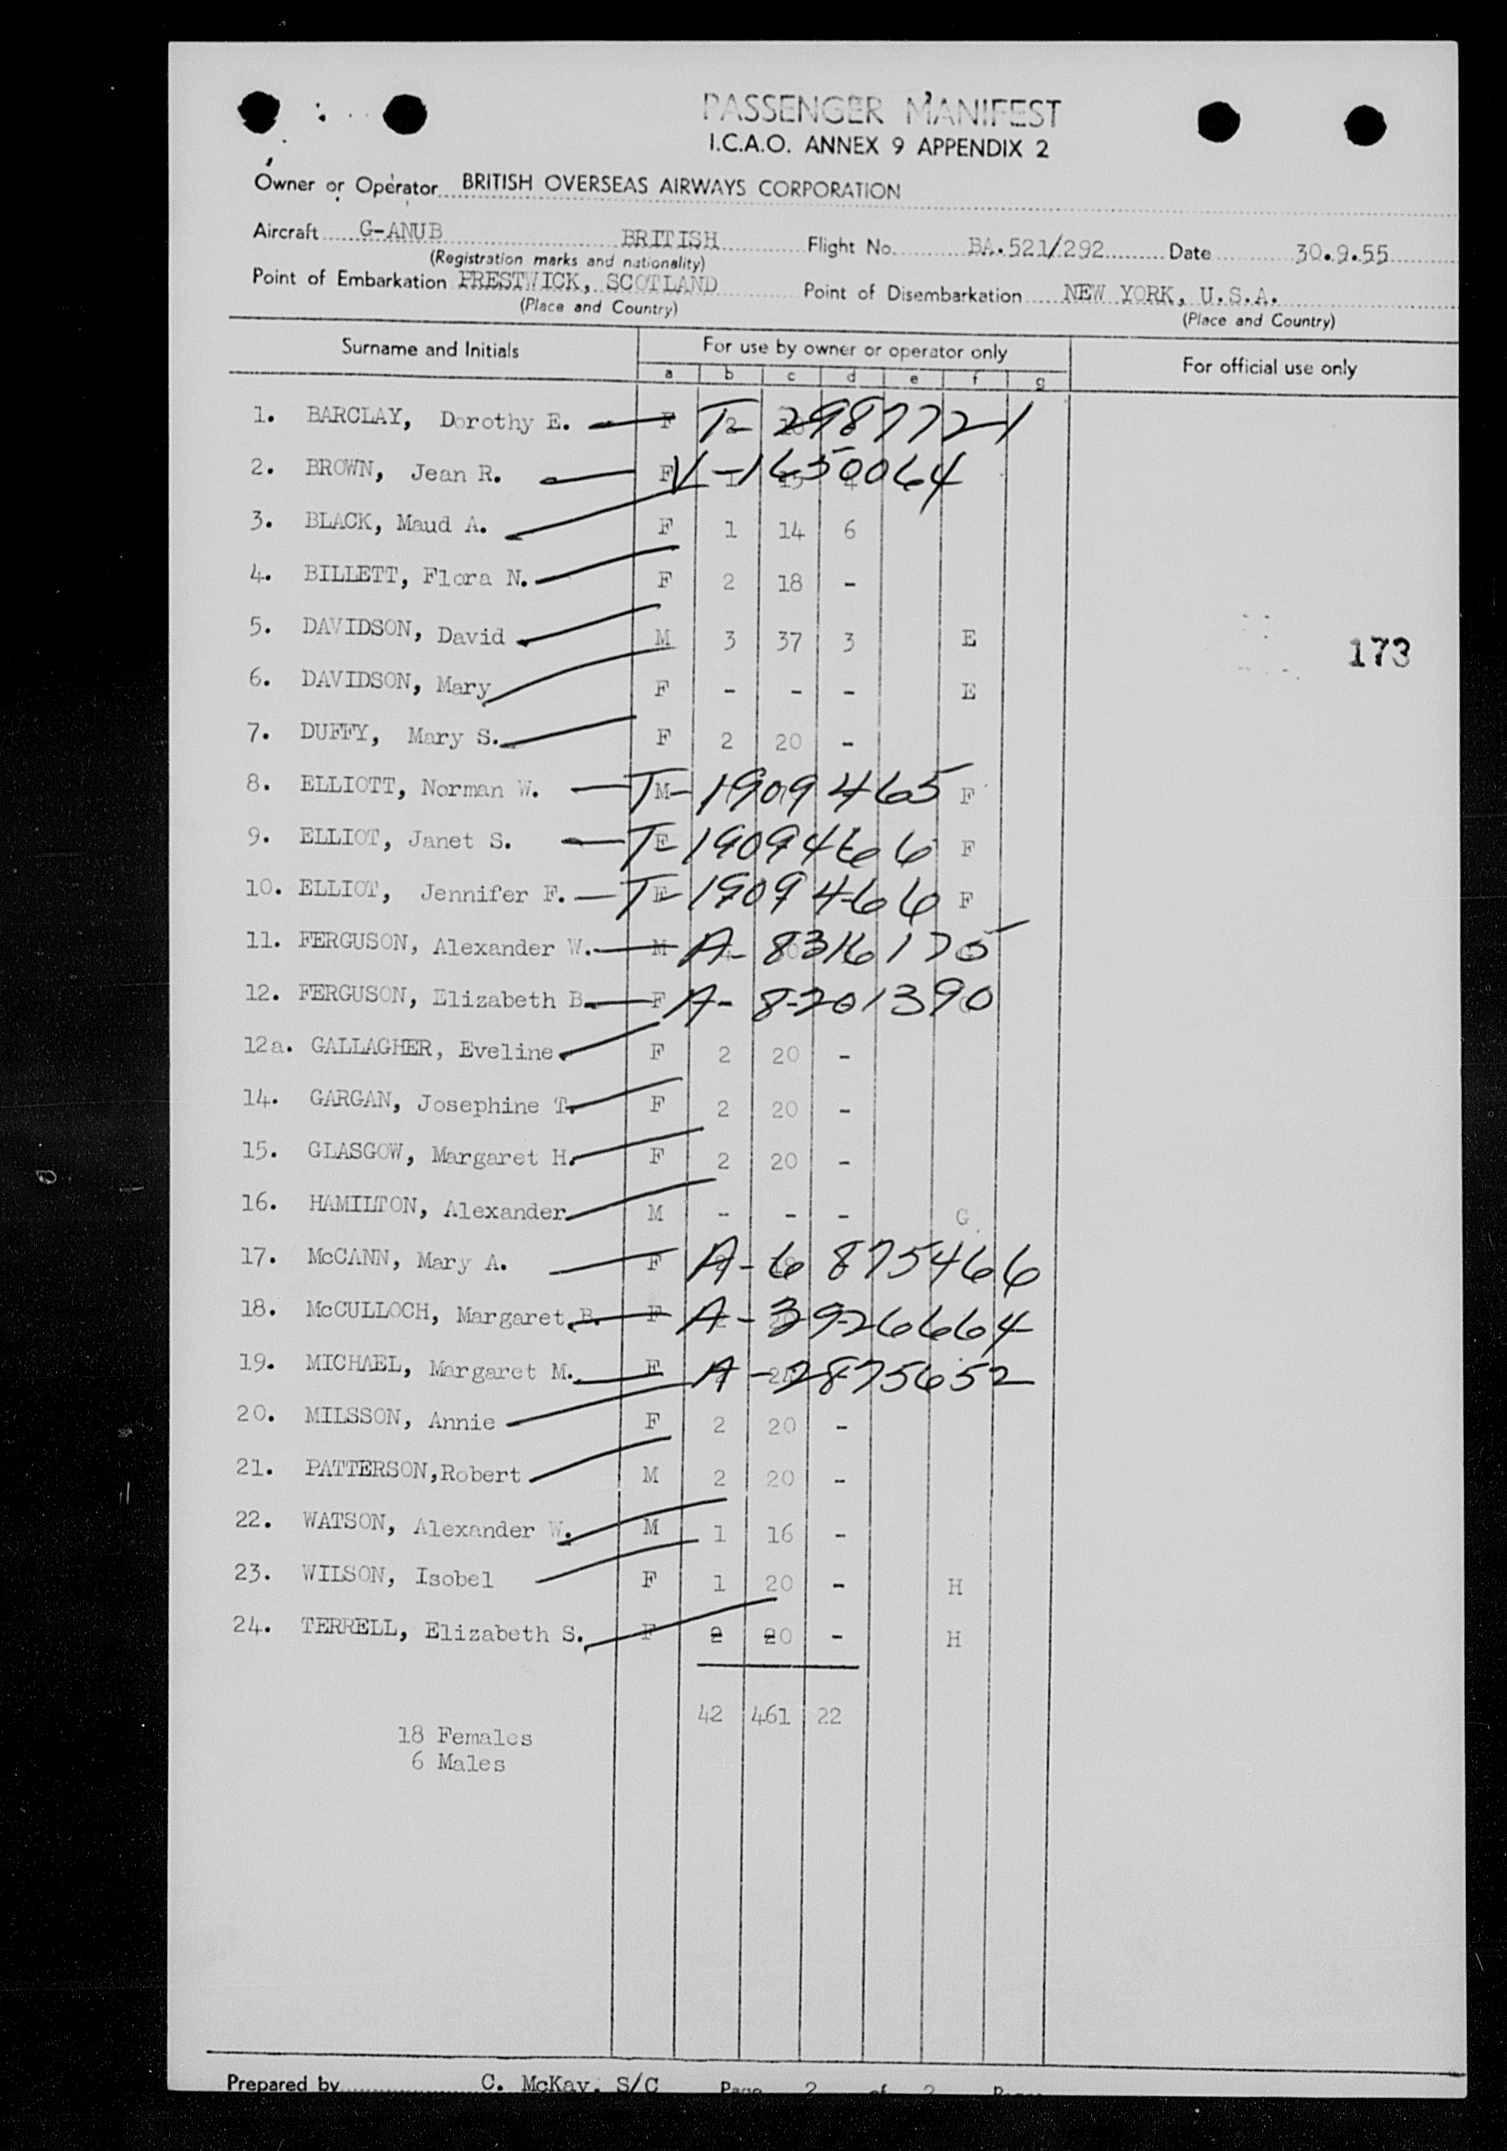 PASSENGER MANIFEST
I.C.A.O. ANNEX 9 APPENDIX 2
Owner or Operator BRITISH OVERSEAS AIRWAYS CORPORATION
Aircraft G-ANUB BRITISH Flight No. BA.521/292 Date 30.9.55
(Registration marks and nationality)
Point of Embarkation PRESTWICK, SCOTLAND Point of Disembarkation NEW YORK, U.S.A.
(Place and Country) (Place and Country)
Surname and Initials For use by owner or operator only For official use only
a b c d e f g
1. BARCLAY, Dorothy E. F T-2987721
2. BROWN, Jean R. F V-1650064
3. BLACK, Maud A. F 1 14 6
4. BILLETT, Flora N. F 2 18 -
5. DAVIDSON, David M 3 37 3 E
173
6. DAVIDSON, Mary F - - - E
7. DUFFY, Mary S. F 2 20 -
8. ELLIOTT, Norman W. M T-1909465 F
9. ELLIOT, Janet S. F T-1909466 F
10. ELLIOT, Jennifer F. F T-1909466 F
11. FERGUSON, Alexander W. M A-8316175
12. FERGUSON, Elizabeth B. F A-8-201390
12a. GALLAGHER, Eveline F 2 20 -
14. GARGAN, Josephine T. F 2 20 -
15. GLASGOW, Margaret H. F 2 20 -
16. HAMILTON, Alexander M - - - G
17. McCANN, Mary A. F A-6875466
18. McCULLOCH, Margaret B. F A-3926664
19. MICHAEL, Margaret M. F A-2875652
20. MILSSON, Annie F 2 20 -
21. PATTERSON,Robert M 2 20 -
22. WATSON, Alexander W. M 1 16 -
23. WILSON, Isobel F 1 20 - H
24. TERRELL, Elizabeth S. F 2 20 - H
42 461 22
18 Females
6 Males
Prepared by C. McKay. S/C Page 2 of 2